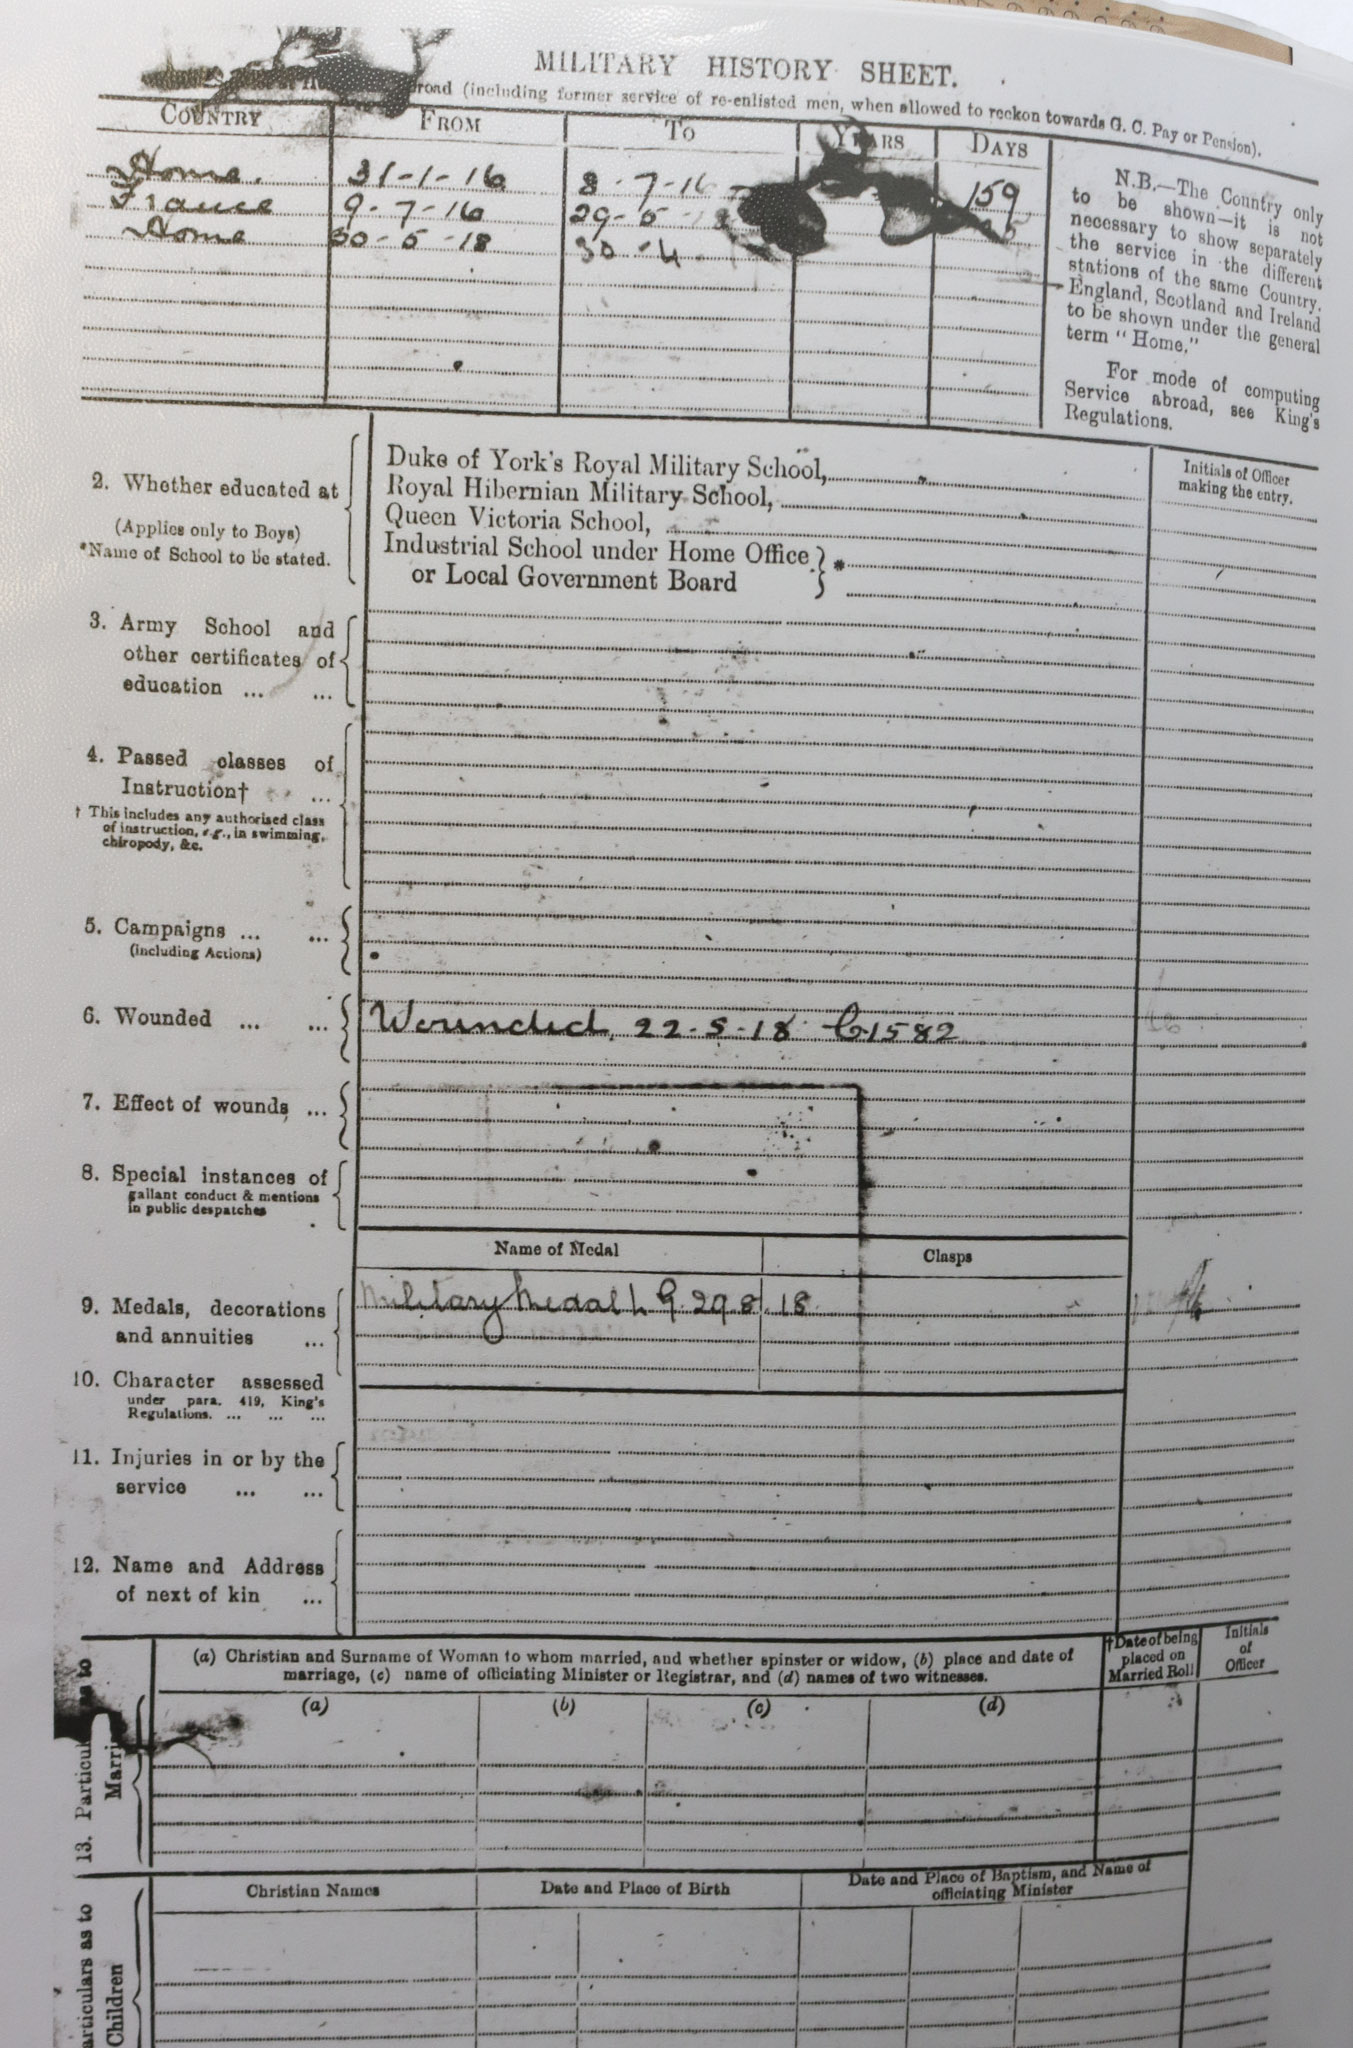 MILITARY HISTORY SHEET.
road (including former service of re-enlisted men, when allowed to reckon towards G. C. Pay or Pension).
COUNTRY FROM TO YEARS DAYS
Home. 31-1-16 8-7-16 159
France 9-7-16 29-5-
Home 30-5-18 30-4-
N.B.—The Country only
to be shown—it is not
necessary to show separately
the service in the different
stations of the same Country.
England, Scotland and Ireland
to be shown under the general
term "Home."
For mode of computing
Service abroad, see King's
Regulations.
Initials of Officer
making the entry.
2. Whether educated at
(Applies only to Boys)
*Name of School to be stated.
Duke of York's Royal Military School,
Royal Hibernian Military School,
Queen Victoria School,
Industrial School under Home Office
or Local Government Board } *
3. Army School and
other certificates of
education ... ...
4. Passed classes of
Instruction† ...
† This includes any authorised class
of instruction, e.g., in swimming,
chiropody, &c.
5. Campaigns ... ...
(including Actions)
6. Wounded ... ... Wounded 22-5-18 C.1582
7. Effect of wounds ...
8. Special instances of
gallant conduct & mentions
in public despatches
Name of Medal Clasps
9. Medals, decorations
and annuities ...
Military Medal L.G. 29.8.18
10. Character assessed
under para. 419, King's
Regulations. ... ... ...
11. Injuries in or by the
service ... ...
12. Name and Address
of next of kin ...
13. Particulars as to
Marri
(a) Christian and Surname of Woman to whom married, and whether spinster or widow, (b) place and date of
marriage, (c) name of officiating Minister or Registrar, and (d) names of two witnesses.
†Date of being
placed on
Married Roll
Initials
of
Officer
(a) (b) (c) (d)
articulars as to
Children
Christian Names Date and Place of Birth
Date and Place of Baptism, and Name of
officiating Minister